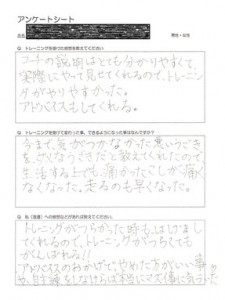 アンケートシート
氏名
男性・女性
Q. トレーニングを受けた感想を教えてください
コートの説明はとても分かりやすくて、
実際にやって見せてくれるので、トレーニン
グがやりやすかった。
アドバイスもしてくれる。
Q. トレーニングを受けて変わった事、できるようになった事はなんですか?
今まで、気がつかなかった悪いうごき
を、よくなうごきだと教えてくれたので、
生活する上でも、痛かったこしが痛く
なくなった。走るのも早くなった。
Q. 私（須浦）への感想などがあれば教えてください。
トレーニングがつらかった時も、はげまし
てくれるので、トレーニングがつらくても
がんばれる!!
アドバイスのおかげで、やめた方がいい事
や、しなければ本当に大切に気づいた